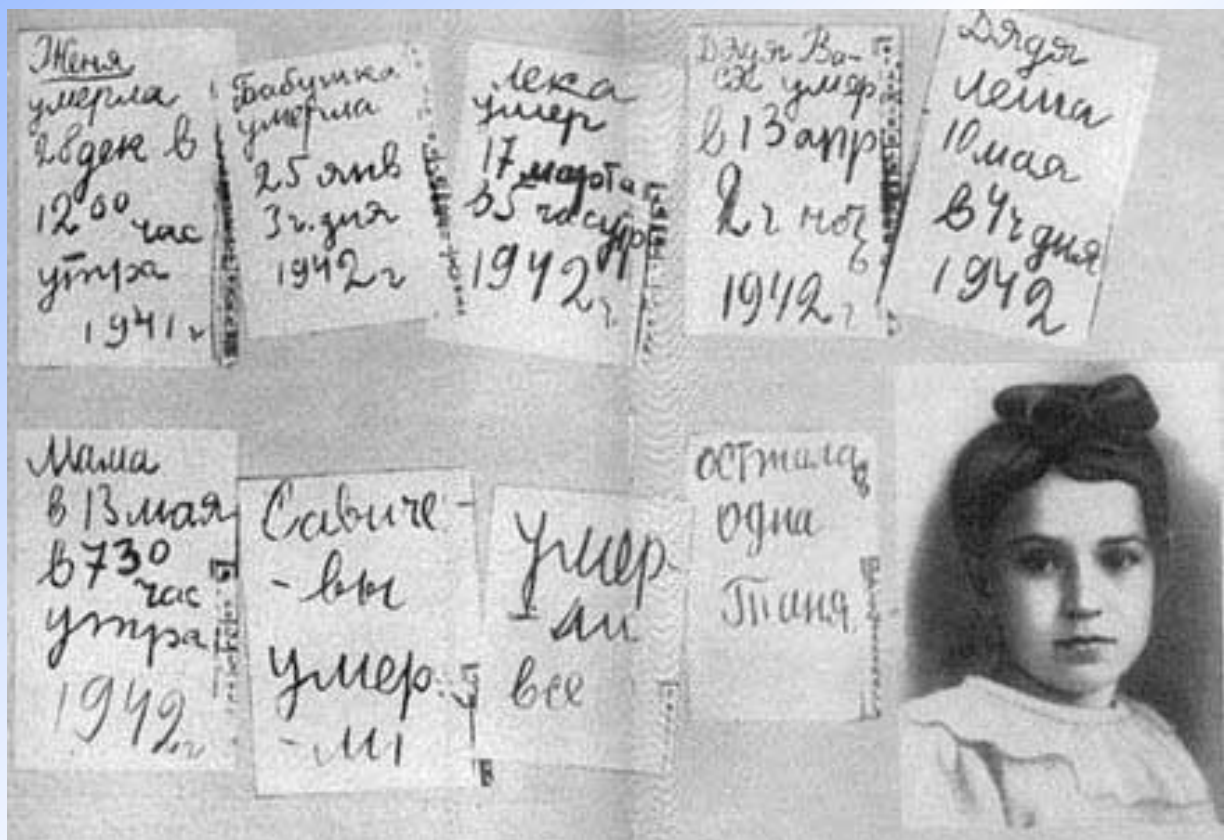 Женя
умерла
28 дек в
12 00 час
утра
1941 г
Бабушка
умерла
25 янв
3 ч. дня
1942 г
Лека
умер
17 марта
в 5 час утр
1942 г
Дядя Ва-
ся умер
в 13 апр
2 ч ночь
1942 г
Дядя
Леша
10 мая
в 4 ч дня
1942
Мама
в 13 мая
в 7 30
час
утра
1942 г
Савиче-
-вы
умер-
-ли
умер-
-ли
все
осталась
одна
Таня